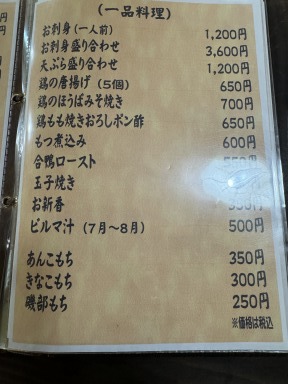 (一品料理)
お刺身(一人前) 1,200円
お刺身盛り合わせ 3,600円
天ぷら盛り合わせ 1,200円
鶏の唐揚げ(5個) 650円
鶏のほうばみそ焼き 700円
鶏もも焼きおろしポン酢 650円
もつ煮込み 600円
合鴨ロースト
玉子焼き
お新香
ビルマ汁(7月~8月) 500円
あんこもち 350円
きなこもち 300円
磯部もち 250円
※価格は税込